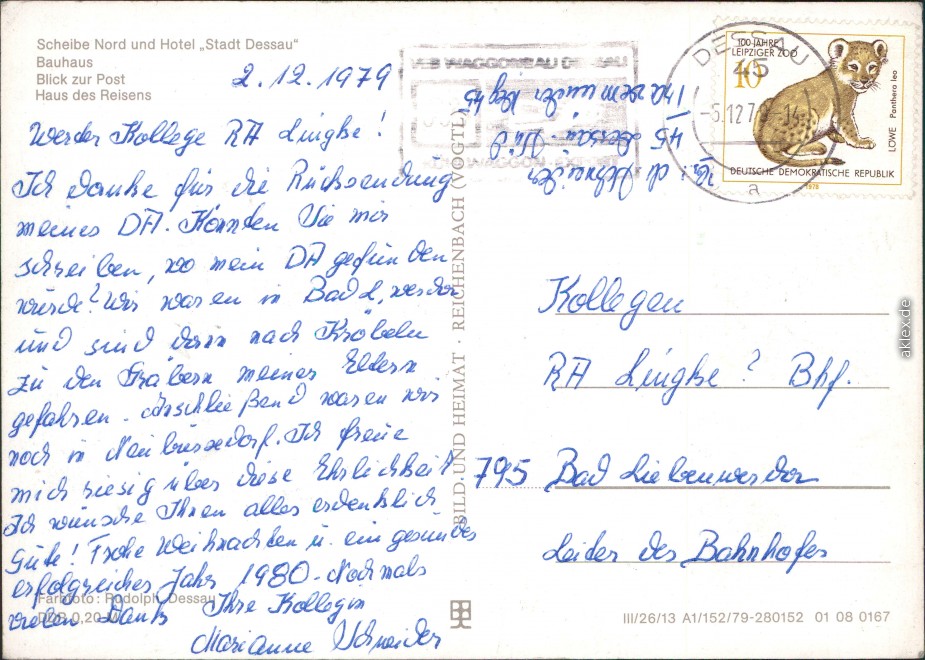 Scheibe Nord und Hotel „Stadt Dessau“
Bauhaus
Blick zur Post
Haus des Reisens
2.12.1979
Werder Kollege RA Lingke!
Ich danke für die Rücksendung
meines DA. Könnten Sie mir
schreiben, wo mein DA gefunden
wurde? Wir waren in Bad L,werda
und sind dann nach Kröbeln
zu den Gräbern meiner Eltern
gefahren. Anschließend waren wir
noch in Neuburxdorf. Ich freue
mich riesig über diese Ehrlichkeit
Ich wünsche Ihnen alles erdenklich
Gute! Frohe Weihnachten u. ein gesundes
erfolgreiches Jahr 1980. Nochmals
vielen Dank Ihre Kollegin
Marianne Schneider
Farbfoto: Rudolph, Dessau
DDR 0,20 M
BILD UND HEIMAT · REICHENBACH (VOGTL)
VEB WAGGONBAU DESSAU
WAGGON-EXPORT
Abs. M. Schneider
45 Dessau-Süd
DESSAU
45
-5.12.79-14
a
100 JAHRE
LEIPZIGER ZOO
10
LÖWE Panthera leo
DEUTSCHE DEMOKRATISCHE REPUBLIK
1978
Kollegen
RA Lingke? Bhf.
795 Bad Liebenwerda
Leiter des Bahnhofes
III/26/13 A1/152/79-280152 01 08 0167
aklex.de